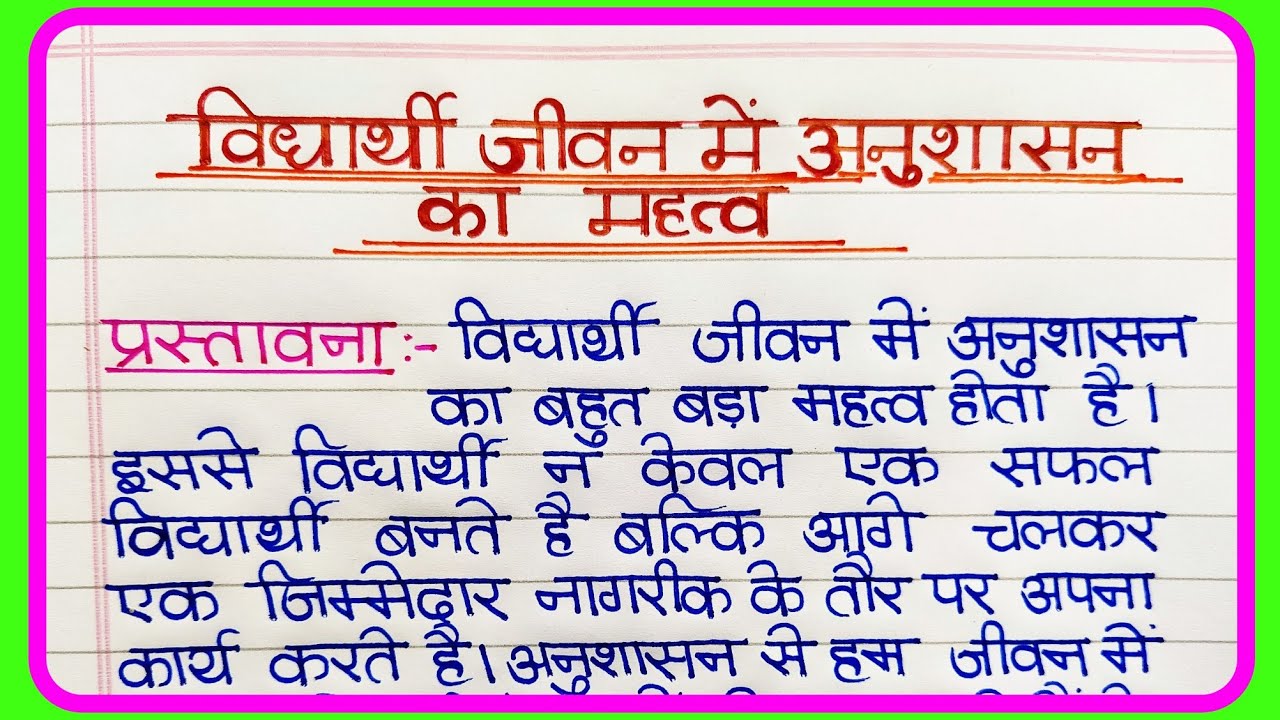 विधार्थी जीवन में अनुशासन
का महत्व
प्रस्तावना :- विद्यार्थी जीवन में अनुशासन
का बहुत बड़ा महत्व होता है।
इससे विद्यार्थी न केवल एक सफल
विद्यार्थी बनते है बल्कि आगे चलकर
एक जिम्मेदार नागरीक के तौर पर अपना
कार्य करते है। अनुशासन से हम जीवन में